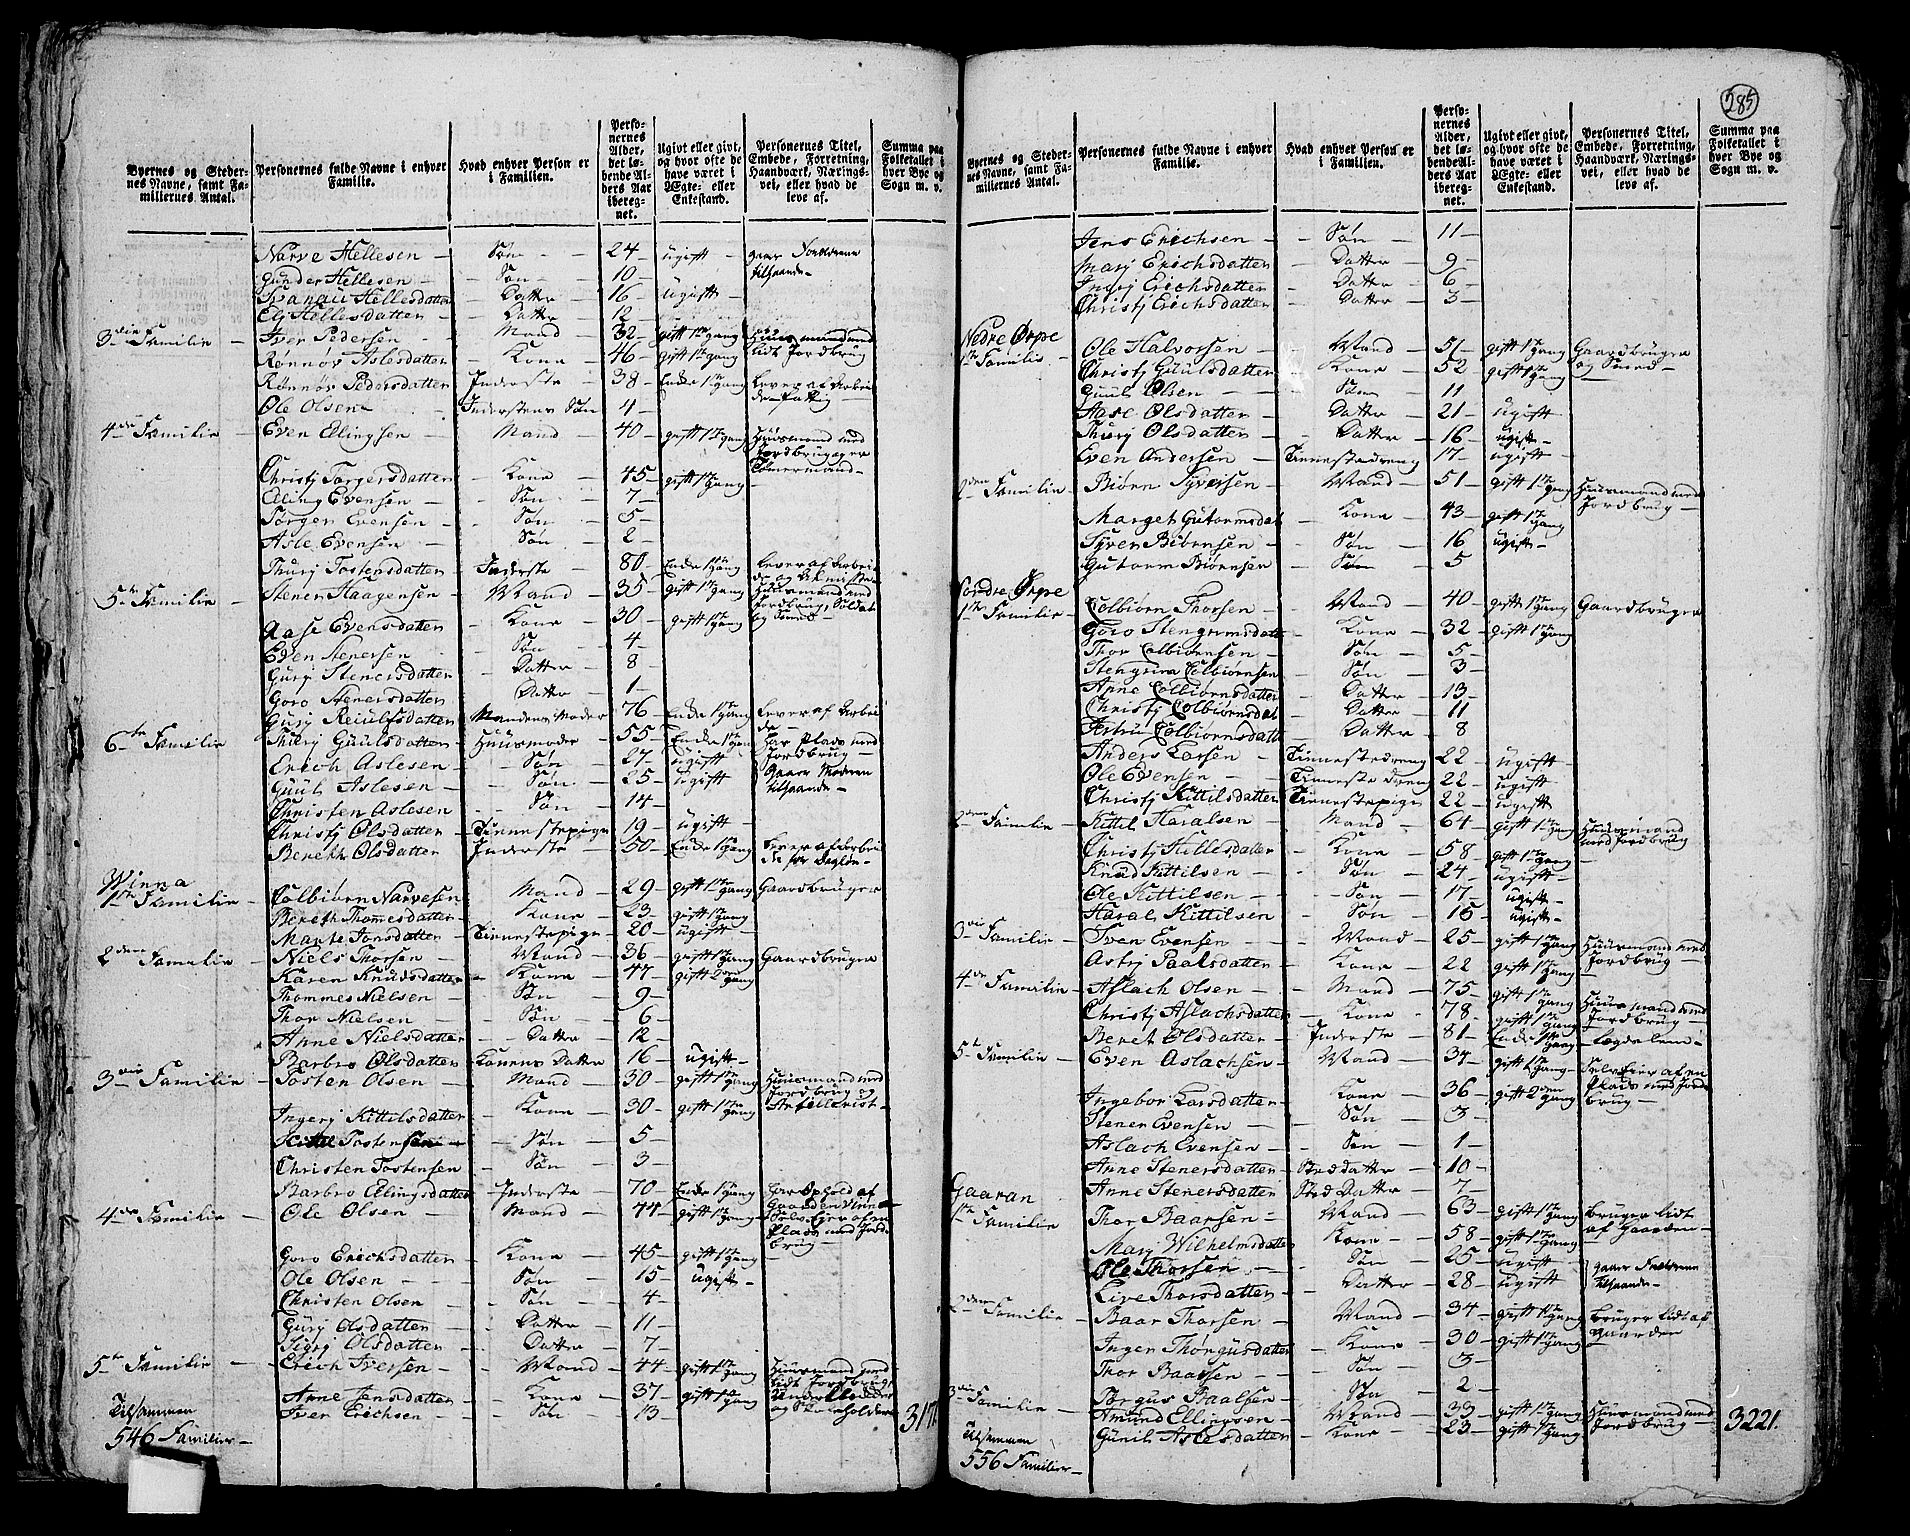 285
Byernes og Stedernes Navne, samt Familliernes Antal. | Personernes fulde Navne i enhver Familie. | Hvad enhver Person er i Familien. | Personernes Alder, det løbende Alders Aar iberegnet. | Ugivt eller givt, og hvor ofte de have været i Ægte- eller Enkestand. | Personernes Titel, Embede, Forretning, Haandværk, Næringsvei, eller hvad de leve af. | Summa paa Folketallet i hver Bye og Sogn m. v.
Narve Hellesen – Søn – 24 – ugift – gaar Forældrene tilhaande –
Gunder Hellesen – Søn – 10 –
Datter – 16 – ugift –
Elj Hellesdatter – Datter – 12 –
3die Familie – Iver Pedersen – Mand – 32 – gift 1te gang Huusmand med lidt Jordbrug
Rønnøv Aslesdatter – Kone – 46 – gift 1te gang
Rønnøv Pedersdatter Inderste – 38 – Enke 1te gang Lever af Arbeide – fattig –
Ole Olsen – Inderstens Søn 4 –
4de Familie – Even Ellingsen – Mand – 40 – gift 1te gang Huusmand med Jordbrug og er Tømermand –
Christj Torgersdatter – Kone – 45 – gift 1te gang
Elling Evensen – Søn – 7 –
Torger Evensen – Søn – 5 –
Asle Evensen – Søn – 2 –
Thurj Tostensdatter – Inderste – 80 – Enke 1te gang Lever af Arbeide og Almisse
5te Familie – Stener Haagensen – Mand – 35 – gift 1te gang Huusmand med Jordbrug, Soldat
Aase Evensdatter – Kone – 30 – gift 1te gang
Even Stenersen – Søn – 4 –
Gurj Stenersdatter – Datter – 8 –
Goro Stenersdatter – Datter – 1 –
Gurj Reiulfsdatter Mandens Moder 76 – Enke 1te gang Lever af Arbeide –
6te Familie – Thurj Guulsdatter – Huusmoder – 55 – Enke 1te gang Har Plads med Jordbrug –
Erich Aslesen – Søn – 27 – ugift gaaer Moderen tilhaande –
Guul Aslesen – Søn – 25 – ugift
Christen Aslesen – Søn – 14 –
Christj Olsdatter – Tienestepige 19 – ugift –
Bereth Olsdatter Inderste – 50 – Enke 1te gang Lever af Arbeide for Dagløn –
Winna
1te Familie – Colbiørn Narvesen Mand – 29 – gift 1te gang Gaardbruger
Bereth Thomesdatter – Kone – 23 – gift 1te gang
Marte Jonsdatter – Tienestepige – 20 – ugift –
2den Familie – Niels Thorsen – Mand – 36 – gift 1te gang Gaardbruger
Karen Knudsdatter – Kone – 47 – gift 2den gang
Thommes Nielsen – Søn – 9 –
Thor Nielsen – Søn – 6 –
Anne Nielsdatter – Datter – 12 –
Barbro Olsdatter Konens Datter 16 – ugift –
3die Familie – Tosten Olsen – Mand – 30 – gift 1te gang Huusmand med Jordbrug og Artillerist –
Ingerj Kittilsdatter – Kone – 30 – gift 1te gang
Kittil Tostensen – Søn – 5 –
Christen Tostensen – Søn – 3 –
Barbro Ellingsdatter Inderste – 70 – Enke 1te gang har Ophold af Gaarden Vinna
4de Familie – Ole Olsen – Mand – 44 – gift 1te gang – Selveier af en Plads med Jordbrug –
Goro Erichsdatter – Kone – 45 – gift 1te gang
Ole Olsen – Søn – 15 – ugift –
Christen Olsen – Søn – 4 –
Gurj Olsdatter – Datter – 11 –
Sigrj Olsdatter – Datter – 7 –
5te Familie – Erich Iversen – Mand – 44 – gift 1te gang Huusmand med lidt Jordbrug og Skoleholder
Anne Jensdatter – Kone – 37 – gift 1te gang
Iver Erichsen – Søn – 13 –
Tilsammen 546 Familier –
Byernes og Stedernes Navne, samt Familliernes Antal. | Personernes fulde Navne i enhver Familie. | Hvad enhver Person er i Familien. | Personernes Alder, det løbende Alders Aar iberegnet. | Ugivt eller givt, og hvor ofte de have været i Ægte- eller Enkestand. | Personernes Titel, Embede, Forretning, Haandværk, Næringsvei, eller hvad de leve af. | Summa paa Folketallet i hver Bye og Sogn m. v.
Jens Erichsen – Søn – 11 –
Marj Erichsdatter – Datter – 9 –
Ingrj Erichsdatter – Datter – 6 –
Christj Erichsdatter – Datter – 3 –
Nedre Ørpe
1te Familie – Ole Halvorsen – Mand – 51 – gift 1te gang Gaardbruger og Smed –
Christj Guulsdatter – Kone – 52 – gift 1te gang
Guul Olsen – Søn – 11
Aase Olsdatter – Datter – 21 – ugift
Thurj Olsdatter – Datter – 16 – ugift –
Even Andersen – Tienestedreng 17 – ugift –
2den Familie – Biørn Syversen – Mand – 51 – gift 1te gang Huusmand med Jordbrug –
Marget Gutormsdat – Kone – 43 – gift 1te gang
Syver Biørnsen – Søn – 16 ugift –
Gutorm Biørnsen – Søn – 5
Søndre Ørpe
1te Familie – Colbiørn Thorsen – Mand – 40 – gift 1te gang Gaardbruger
Goro Stengrimsdatt – Kone – 32 – gift 1te gang
Thor Colbiørnsen – Søn – 5 –
Stengrim Colbiørnsen Søn – 3 –
Anne Colbiørnsdatter – Datter – 13 –
Christj Colbiørnsdat – Datter – 11
Astrii Colbiørnsdatt – Datter – 8
Anders Larsen – Tienestedreng 22 – ugift –
Ole Evensen – Tienestedreng 22 – ugift
Christj Kittilsdatter Tienestepige – 22 – ugift
2den Familie – Kittil Haralsen – Mand – 64 – gift 1te gang Huusmand med Jordbrug –
Christj Hellesdatter – Kone – 58 – gift 1te gang
Knud Kittilsen – Søn – 24 – ugift –
Ole Kittilsen – Søn – 17 – ugift –
Haral Kittilsen – Søn – 15 – ugift –
3die Familie – Sven Evensen – Mand – 25 – gift 1te gang Huusmand med Jordbrug –
Astrj Paalsdatter – Kone – 22 gift 1te gang
4de Familie – Aslach Olsen – Mand – 75 – gift 1te gang Huusmand med Jordbrug –
Christj Aslachsdatter – Kone – 78 – gift 1te gang
Beret Olsdatter – Inderste – 81 – Enke 1te gang –
5te Familie – Even Aslachsen – Mand – 34 – gift 1te gang – Selveier af en Plads med Jordbrug –
Ingebor Larsdatter – Kone – 36 – gift 2den gang
Stener Evensen – Søn – 3 –
Aslach Evensen – Søn – 1 –
Anne Stenersdatter – Sted datter – 10 –
Anne Stenersdatter – Sted Datter – 7 –
Gaaran
1te Familie – Thor Baarsen – Mand – 63 – gift 1te gang bruger lidt af Gaarden –
Marj Wilhelmsdatt – Kone – 58 – gift 1te gang
Ole Thorsen – Søn – 25 – ugift
Live Thorsdatter – Datter – 28 – ugift gaaer Forældrene tilhaande –
2den Familie – Baar Thorsen – Mand – 34 – gift 1te gang bruger lidt af gaarden
Inger Thorgusdatter – Kone – 30 – gift 1te gang
Thor Baarsen – Søn – 3 –
Torgus Baalsen – Søn – 2 –
3die Familie – Amund Ellingsen – Mand – 33 – gift 1te gang Huusmand med Jordbrug –
Gunil Aslesdatter – Kone – 23 – gift 1te gang
Tilsammen 556 Familier – 3221.